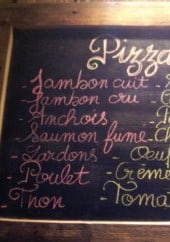 Pizza
-Jambon cuit -
-Jambon cru -
-Anchois -
-Saumon fumé -Ch
-Lardons -Oeuf
-Poulet -Crème
-Thon -Toma